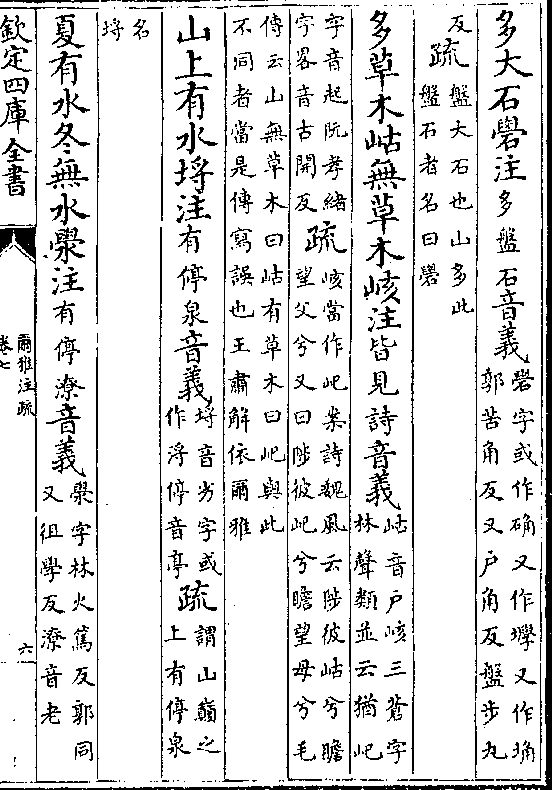 多大石礐注多盤石音義礐字或作确又作㙾又作埆
郭苦角反又戶角反盤步丸
反疏盤大石也山多此
盤石者名曰礐
多草木岵無草木峐注皆見詩音義岵音戶峐三蒼字
林聲類並云猶屺
字音起阮孝緒
字畧音古開反疏峐當作屺案詩魏風云陟彼岵兮瞻
望父兮又曰陟彼屺兮瞻望母兮毛
傳云山無草木曰岵有草木曰屺與此
不同者當是傳寫誤也王肅解依爾雅
山上有水埒注有停泉音義埒音劣字或
作浮停音亭疏謂山巔之
上有停泉
名
埒
夏有水冬無水澩注有停潦音義澩字林火篤反郭同
又徂學反潦音老
欽定四庫全書
爾雅注疏
卷七
六